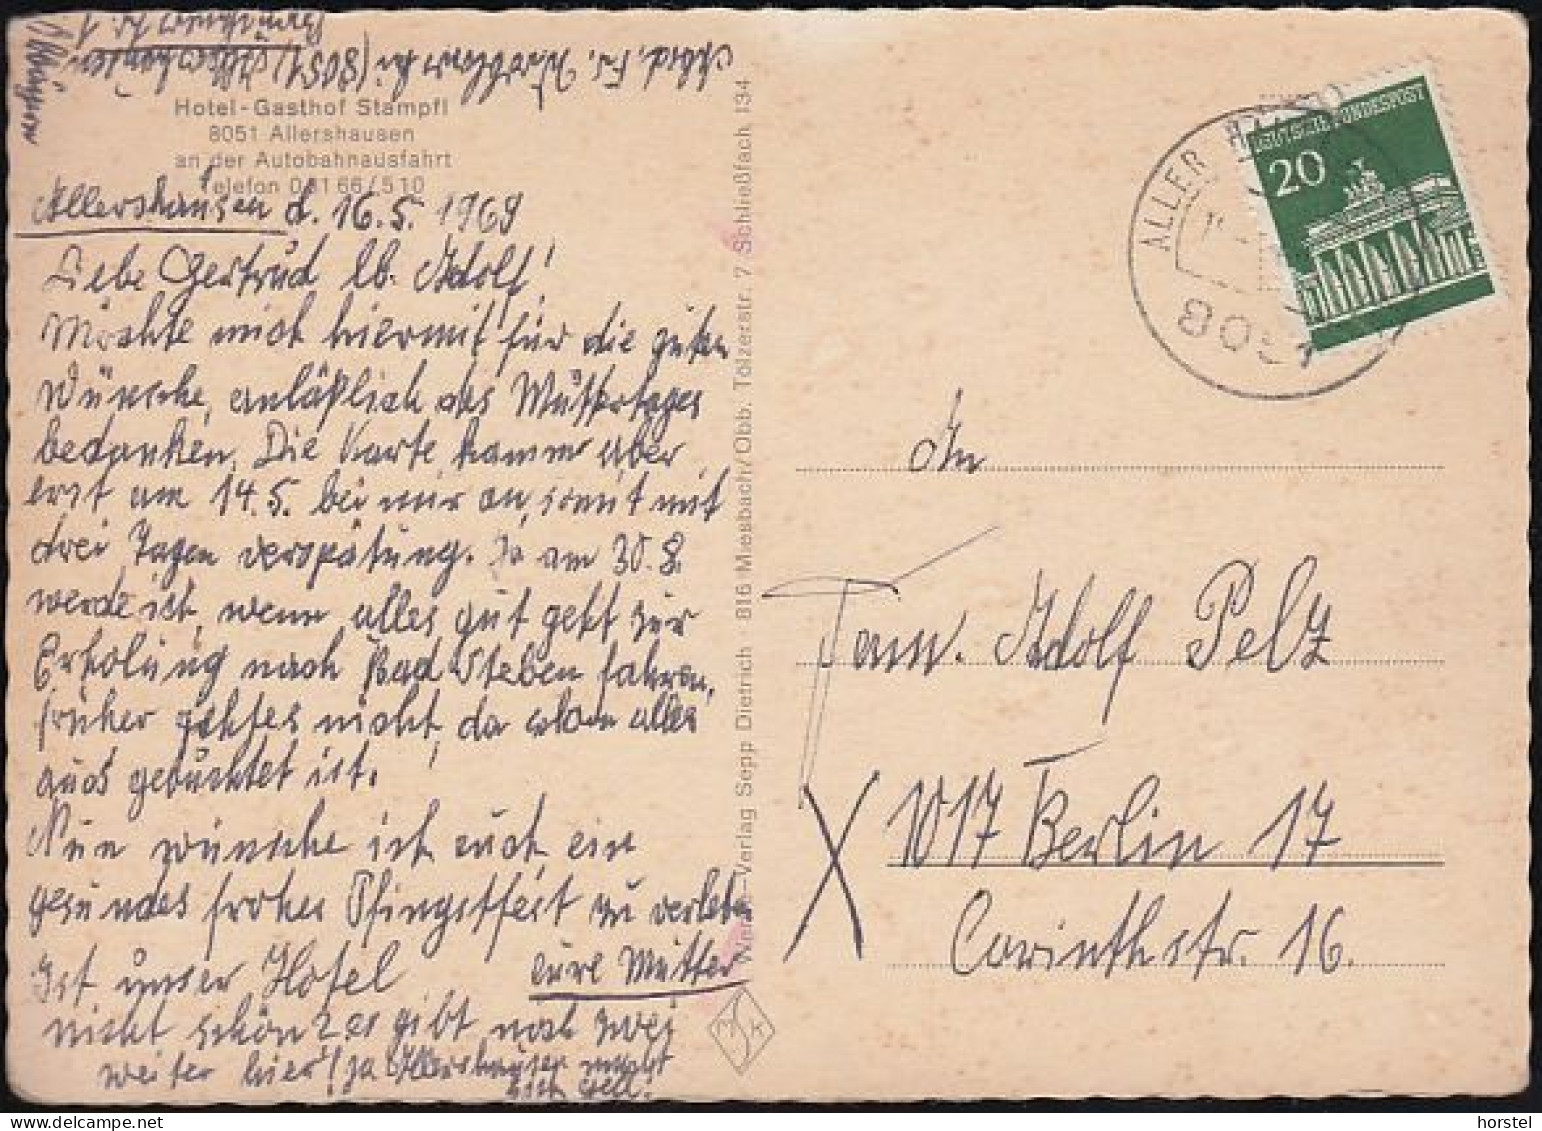 Absd. Fr.
(8051) Allershausen
Hotel-Gasthof Stampfl
8051 Allershausen
an der Autobahnausfahrt
Telefon 08166/510
Allershausen d. 16.5.1969
Liebe Gertrud lb. Adolf!
Möchte mich hiermit für die guten
Wünsche, anläßlich des Muttertages
bedanken. Die Karte kamm aber
erst am 14.5. bei mir an, somit mit
drei Tagen verspätung. Ja am 30.8.
werde ich, wenn alles gut geht zur
Erholung nach Bad Steben fahren,
früher gehtes nicht, da schon alles
aus gebuchtet ist.
Nun wünsche ich euch ein
gesundes frohes Pfingstfest zu verleben
eure Mutter
Ist unser Hotel
nicht schön? es gibt noch zwei
weiter hier! ja Allershausen macht
sich
Verlag Sepp Dietrich · 816 Miesbach/Obb. Tölzerstr. 7 Schließfach 134
ALLERSHAUSEN
8051
DEUTSCHE BUNDESPOST
20
An
Fam. Adolf Pelz
X 1017 Berlin 17
Corinthstr. 16.
horstel